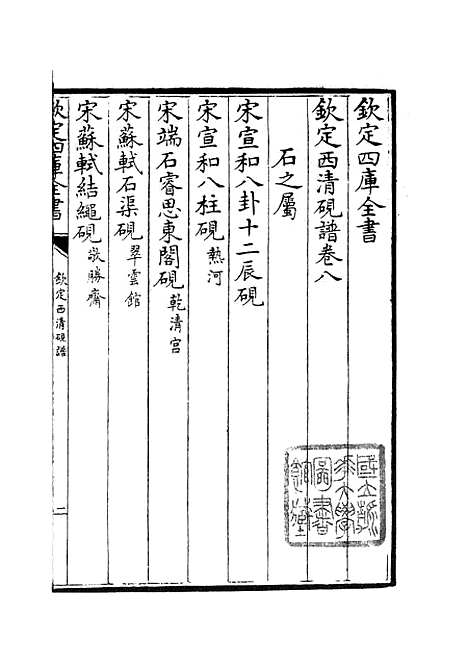 欽定四庫全書
欽定西清硯譜卷八
石之屬
宋宣和八卦十二辰硯
宋宣和八柱硯 熱河
宋端石睿思東閣硯 乾清宫
宋蘇軾石渠硯 翠雲館
宋蘇軾結繩硯 敬勝齋
欽定四庫全書
欽定西清硯譜
二